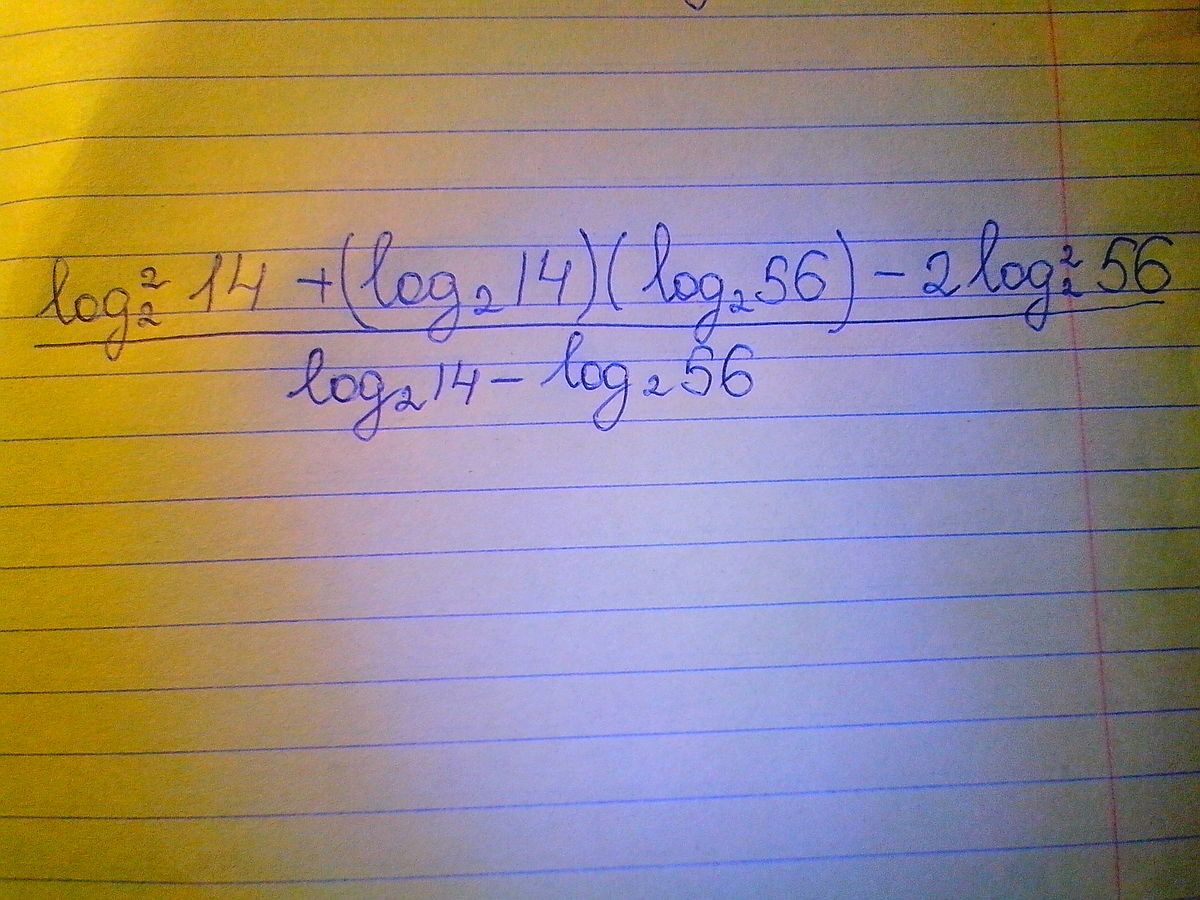 log₂² 14 + (log₂ 14)(log₂ 56) - 2 log₂² 56
log₂ 14 - log₂ 56